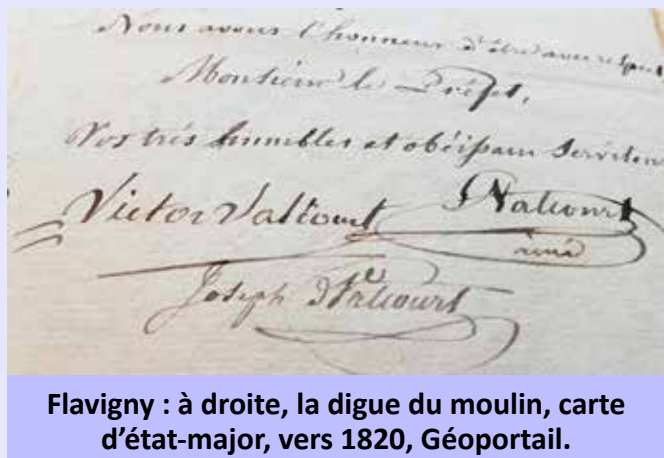 Nous avons l'honneur d'être avec respect
Monsieur le Préfet,
Vos très humbles et obéissans Serviteu
Victor Valcourt Valcourt
ainé
Joseph Valcourt
Flavigny : à droite, la digue du moulin, carte
d'état-major, vers 1820, Géoportail.